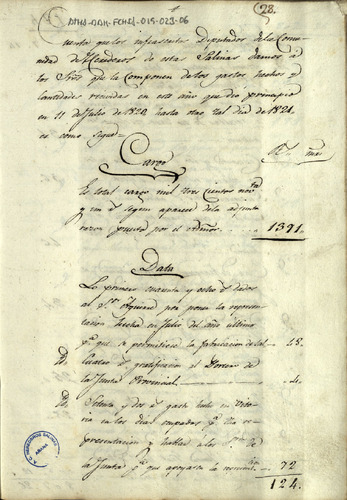 DAHA-AAM-FCHCV-015-023-06
(28.
Cuenta que los infrascritos Diputados de la Comu-
nidad de Herederos de estas Salinas damos á
los Sres que la componen de los gastos hechos y
cantidades recividas en este año que dio principio
en 11 de Julio de 1820 hasta otro tal dia de 1821
es como sigue
Cargo Rs mrs
Es total cargo mil tres cientos nov.ta
y un r.s segun aparece de la adjunta
razon puesta por el Admor. 1391.
Data
Lo primero cuarenta y ocho r.s dados
al S.r Aguirre por poner la represen-
tacion hecha en Julio del año último
p.a que se permitiese la fabricacion de sal 48.
Yd Cuatro de gratificacion al Portero de
la Junta Provincial 4.
Yd Setenta y dos r.s gasto hecho en Vito-
ria en los dias empleados p.a la re-
presentacion y hablar a los S.res de
la Junta p.a que apoyasen la 72
124.